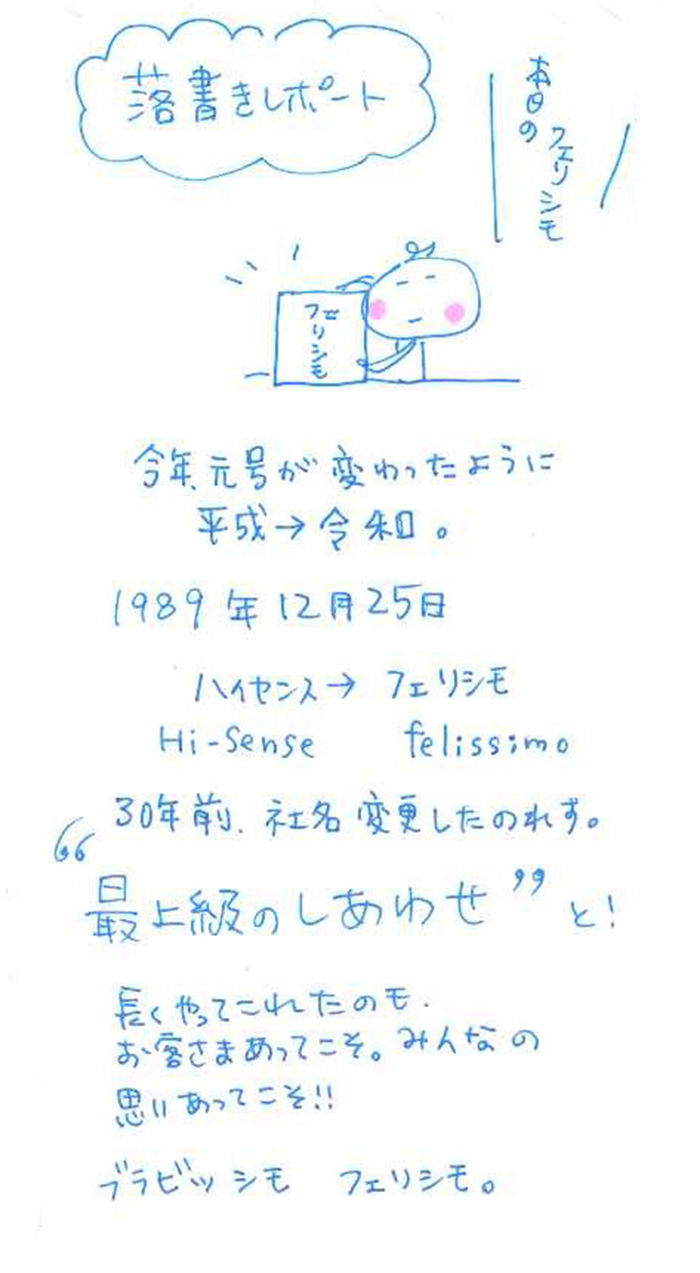 落書きレポート
本日の
フェリシモ
フェリシモ
今年、元号が変わったように
平成→令和。
1989年12月25日
ハイセンス→フェリシモ
Hi-Sense felissimo
30年前、社名変更したのれす。
“最上級のしあわせ”と!
長くやってこれたのも、
お客さまあってこそ。みんなの
思いあってこそ!!
ブラビッシモ フェリシモ。